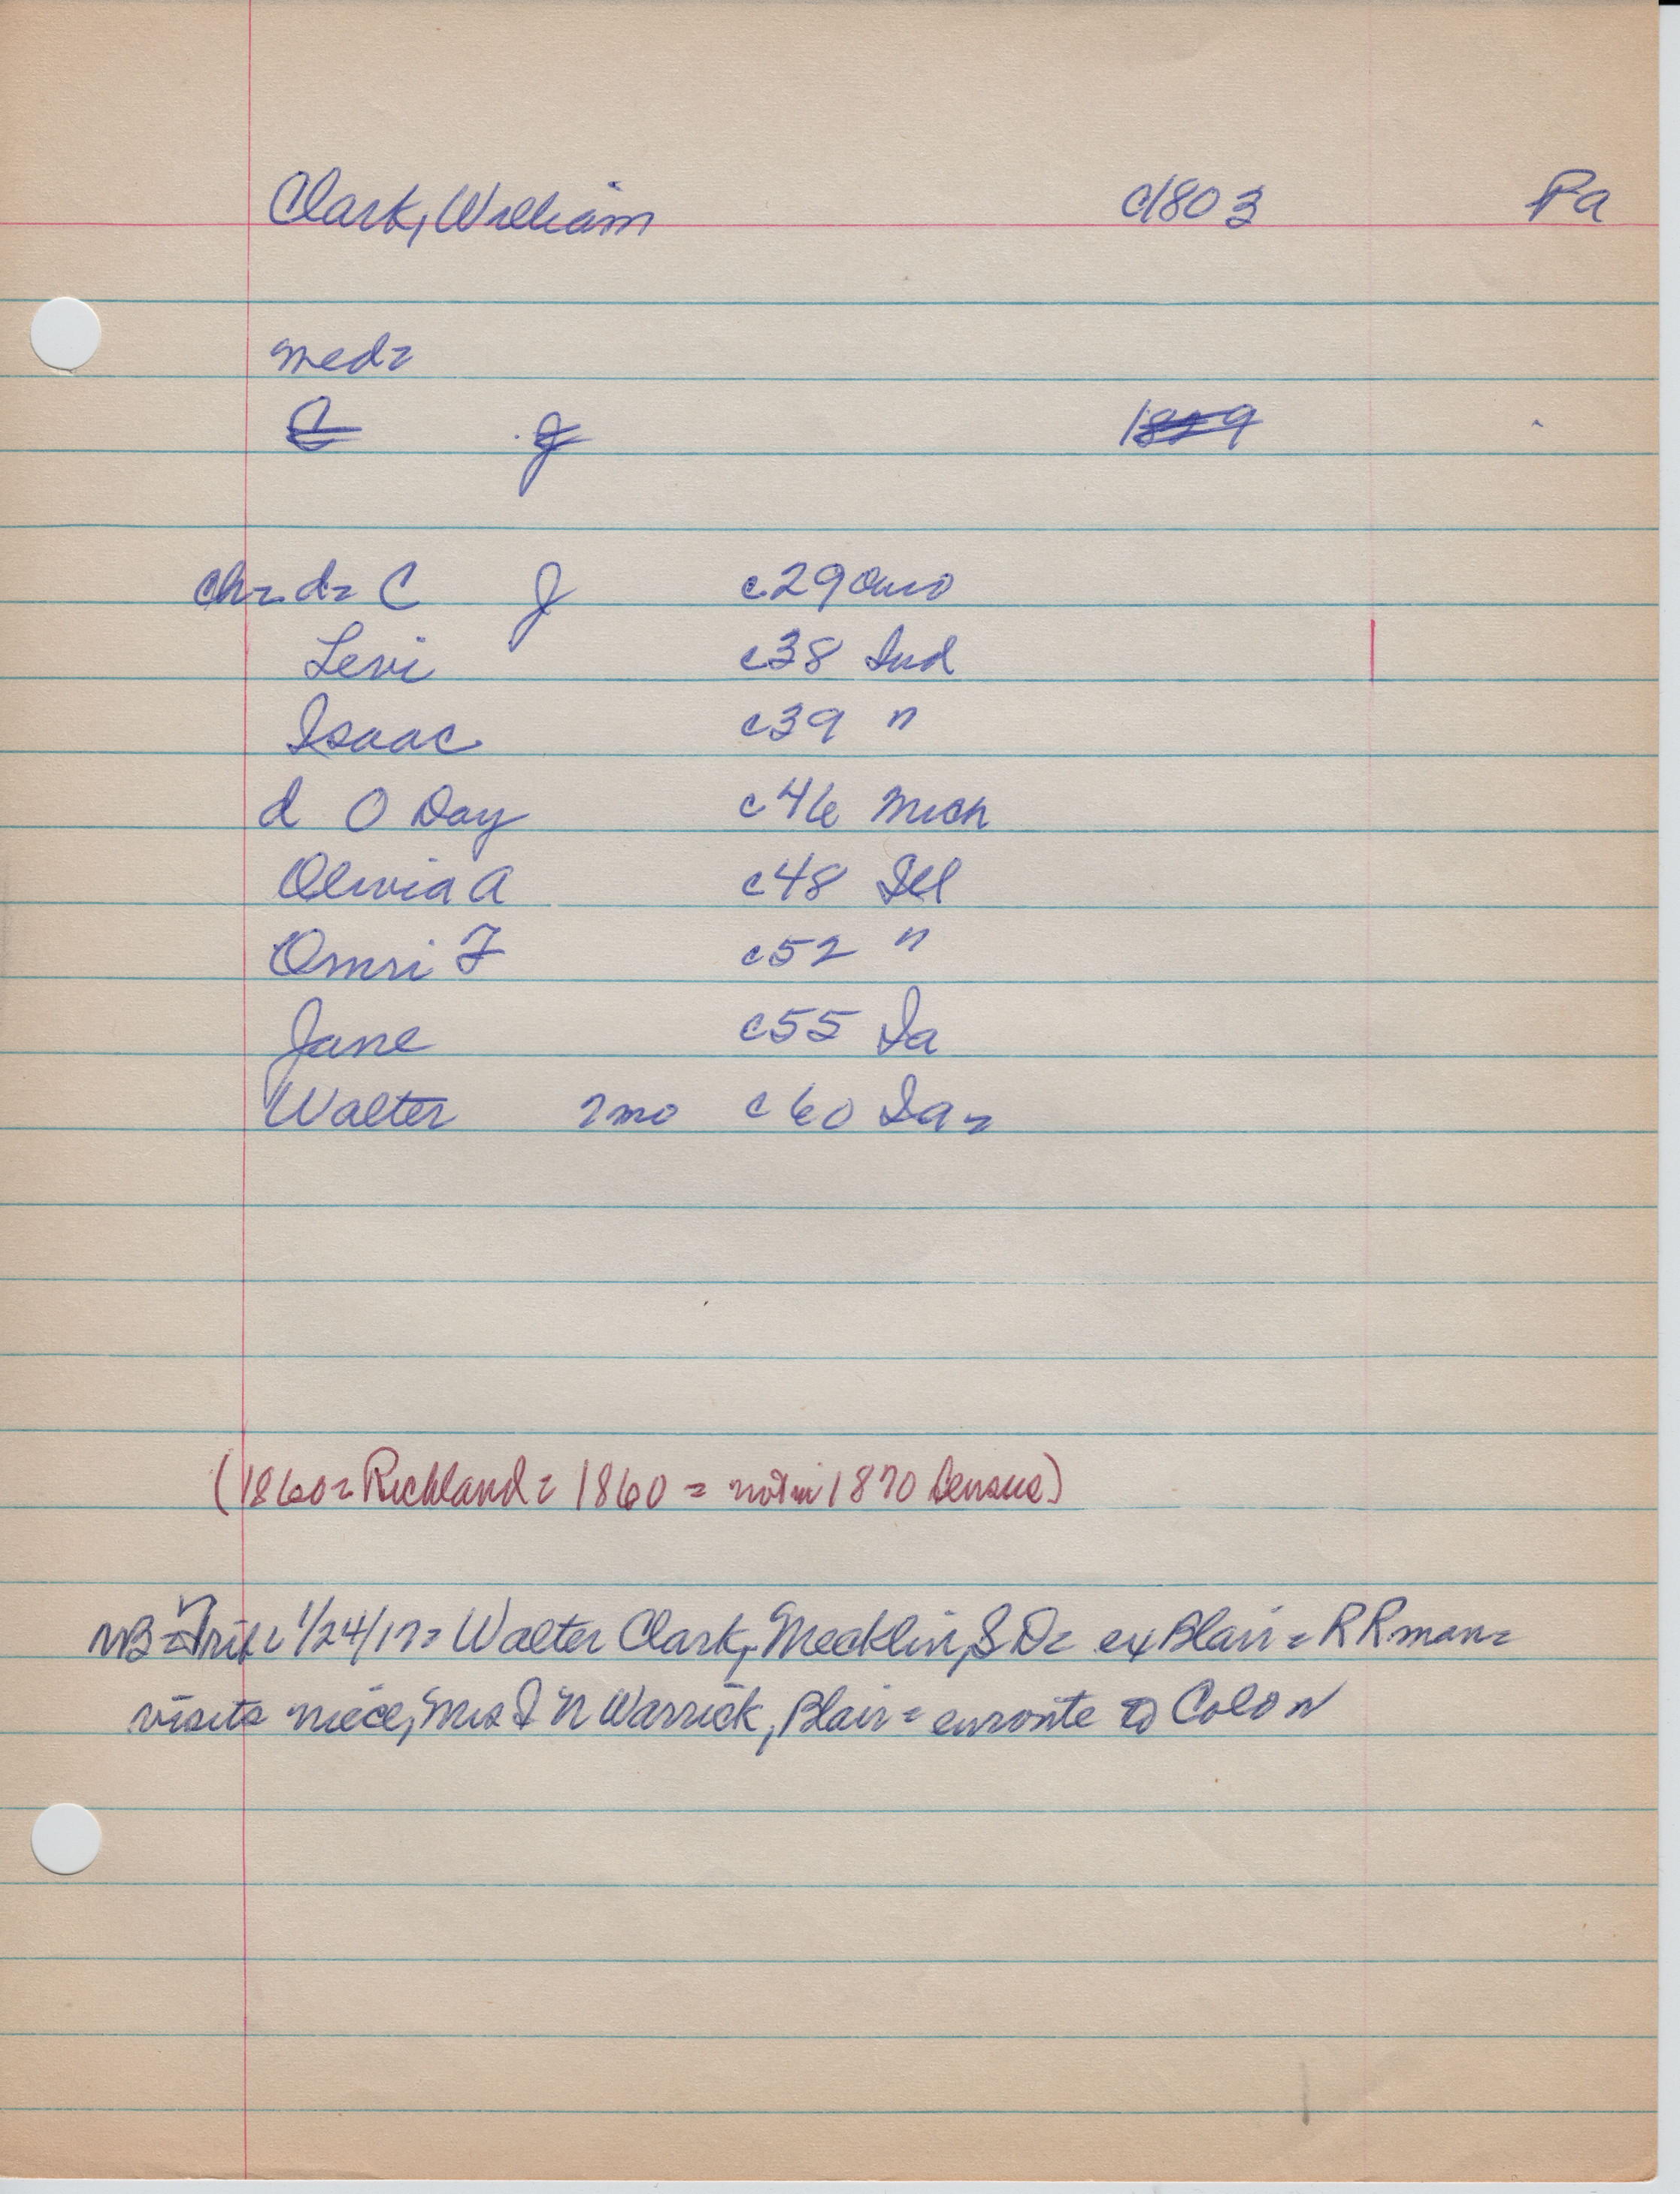 Clark, William c1803 Pa
med=
C J 1829
ch= d= C J c29 Ohio
Levi c38 Ind
Isaac c39 "
d O Day c46 Mich
Olivia A c48 Ill
Omri F c52 "
Jane c55 Ia
Walter 2mo c60 Ia=
(1860= Richland= 1860 = not in 1870 Census)
NB= 1/24/17= Walter Clark, Mecklin, S D= ex Blair= RR man=
visits niece, Mrs I N Warrick, Blair= enroute to Colo